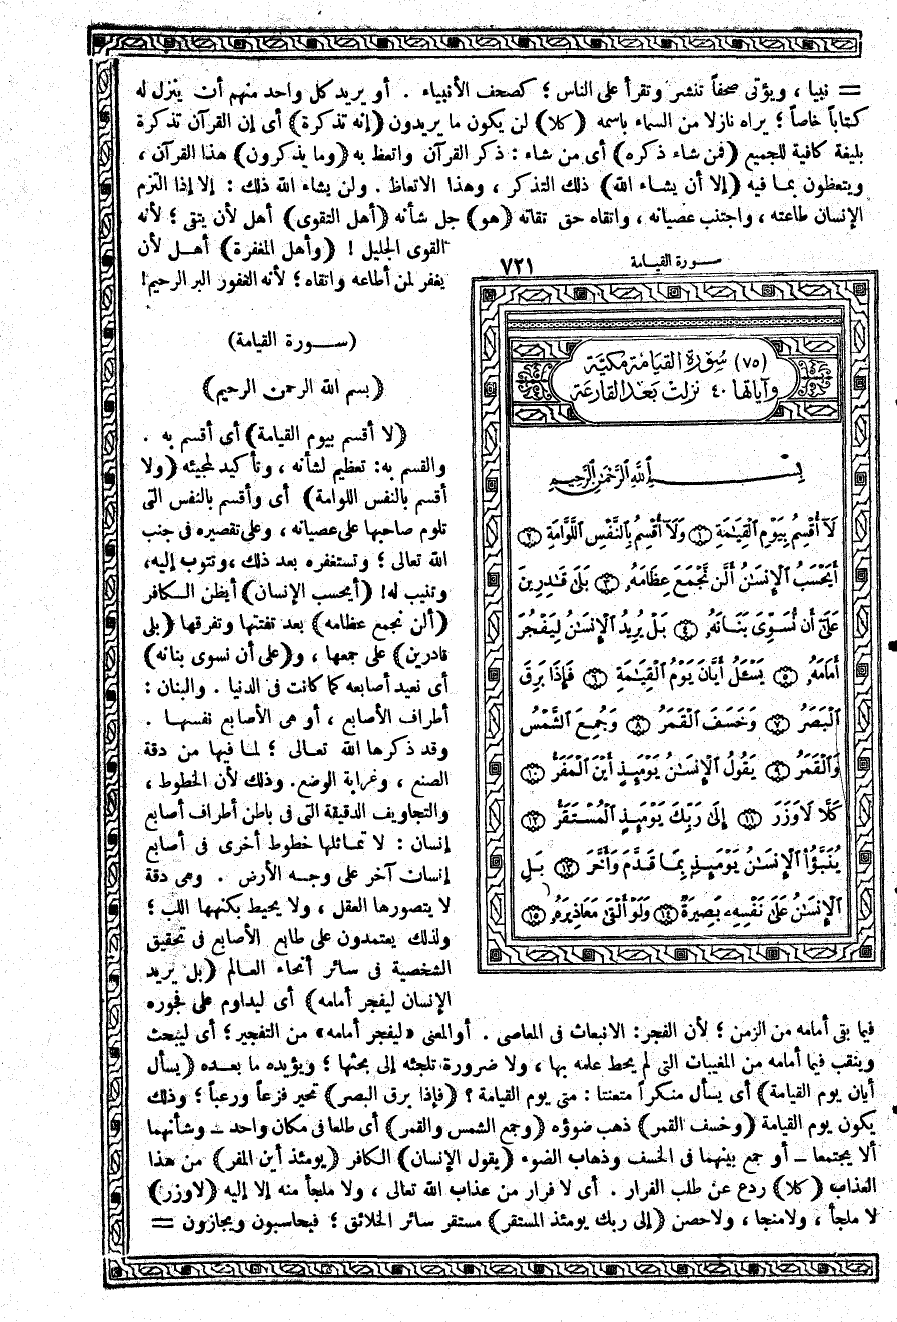 = نبيا ، ويؤتى صحفاً تنشر وتقرأ على الناس ؛ كصحف الأنبياء . أو يريد كل واحد منهم أن ينزل له
كتاباً خاصاً ؛ يراه نازلا من السماء باسمه (كلا) لن يكون ما يريدون (إنه تذكرة) أى إن القرآن تذكرة
بليغة كافية للجميع (فمن شاء ذكره) أى من شاء : ذكر القرآن واتعظ به (وما يذكرون) هذا القرآن ،
ويتعظون بما فيه (إلا أن يشاء الله) ذلك التذكر ، وهذا الاتعاظ . ولن يشاء الله ذلك : إلا إذا التزم
الإنسان طاعته ، واجتنب عصيانه ، واتقاه حق تقاته (هو) جل شأنه (أهل التقوى) أهل لأن يتقى ؛ لأنه
القوى الجليل ! (وأهل المغفرة) أهـل لأن
يغفر لمن أطاعه واتقاه ؛ لأنه الغفور البر الرحيم!
(ســـورة القيامة)
(بسم الله الرحمن الرحيم)
(لا أقسم بيوم القيامة) أى أقسم به .
والقسم به: تعظيم لشأنه ، وتأكيد لمجيئه (ولا
أقسم بالنفس اللوامة) أى وأقسم بالنفس التى
تلوم صاحبها على عصيانه ، وعلى تقصيره فى جنب
الله تعالى ؛ وتستغفره بعد ذلك ،وتتوب إليه،
وتنيب له! (أيحسب الإنسان) أيظن الـكافر
(ألن نجمع عظامه) بعد تفتتها وتفرقها (بلى
قادرين) على جمعها ، و(على أن نسوى بنانه)
أى نعيد أصابعه كما كانت فى الدنيا . والبنان :
أطراف الأصابع ، أو هى الأصابع نفسهـا .
وقد ذكرها الله تعـالى ؛ لمـا فيها من دقة
الصنع ، وغرابة الوضع. وذلك لأن الخطوط ،
والتجاويف الدقيقة التى فى باطن أطراف أصابع
إنسان : لا تماثلها خطوط أخرى فى أصابع
إنسان آخر على وجـه الأرض . وهى دقة
لا يتصورها العقل ، ولا يحيط بكنهها اللب ؛
ولذلك يعتمدون على طابع الأصابع فى تحقيق
الشخصية فى سائر أنحاء العـالم (بل يريد
الإنسان ليفجر أمامه) أى ليداوم على فجوره
ســورة القيـامة ٧٢١
(٧٥) سُورَة القيَامَة مكيّة
وآياتها ٤٠ نزلت بعد القارعة
بِسْمِ اللَّهِ الرَّحْمَنِ الرَّحِيمِ
لَآ أُقْسِمُ بِيَوْمِ ٱلْقِيَٰمَةِ ١ وَلَآ أُقْسِمُ بِٱلنَّفْسِ ٱللَّوَّامَةِ ٢
أَيَحْسَبُ ٱلْإِنسَٰنُ أَلَّن نَّجْمَعَ عِظَامَهُۥ ٣ بَلَىٰ قَٰدِرِينَ
عَلَىٰٓ أَن نُّسَوِّىَ بَنَانَهُۥ ٤ بَلْ يُرِيدُ ٱلْإِنسَٰنُ لِيَفْجُرَ
أَمَامَهُۥ ٥ يَسْـَٔلُ أَيَّانَ يَوْمُ ٱلْقِيَٰمَةِ ٦ فَإِذَا بَرِقَ
ٱلْبَصَرُ ٧ وَخَسَفَ ٱلْقَمَرُ ٨ وَجُمِعَ ٱلشَّمْسُ
وَٱلْقَمَرُ ٩ يَقُولُ ٱلْإِنسَٰنُ يَوْمَئِذٍ أَيْنَ ٱلْمَفَرُّ ١٠
كَلَّا لَا وَزَرَ ١١ إِلَىٰ رَبِّكَ يَوْمَئِذٍ ٱلْمُسْتَقَرُّ ١٢
يُنَبَّؤُا۟ ٱلْإِنسَٰنُ يَوْمَئِذٍۭ بِمَا قَدَّمَ وَأَخَّرَ ١٣ بَلِ
ٱلْإِنسَٰنُ عَلَىٰ نَفْسِهِۦ بَصِيرَةٌ ١٤ وَلَوْ أَلْقَىٰ مَعَاذِيرَهُۥ ١٥
فيما بقى أمامه من الزمن ؛ لأن الفجر: الانبعاث فى المعاصى . أو المعنى «ليفجر أمامه» من التفجير ؛ أى ليبحث
وينقب فيما أمامه من المغيبات التى لم يحط علمه بها ، ولا ضرورة تلجئه إلى بحثها ؛ ويؤيده ما بعـده (يسأل
أيان يوم القيامة) أى يسأل منكراً متعنتا : متى يوم القيامة ؟ (فإذا برق البصر) تحير فزعاً ورعباً ؛ وذلك
يكون يوم القيامة (وخسف القمر) ذهب ضوؤه (وجمع الشمس والقمر) أى طلعا فى مكان واحد ـ وشأنهما
ألا يجتمعا ـ أو جمع بينهما فى الخسف وذهاب الضوء (يقول الإنسان) الكافر (يومئذ أين المفر) من هذا
العذاب (كلا) ردع عن طلب الفرار . أى لا فرار من عذاب الله تعالى ، ولا ملجأ منه إلا إليه (لا وزر)
لا ملجأ ، ولا منجا ، ولا حصن (إلى ربك يومئذ المستقر) مستقر سائر الخلائق ؛ فيحاسبون ويجازون =